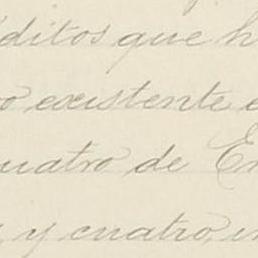 éditos que h
o existente e
cuatro de En
, y cuatro, in